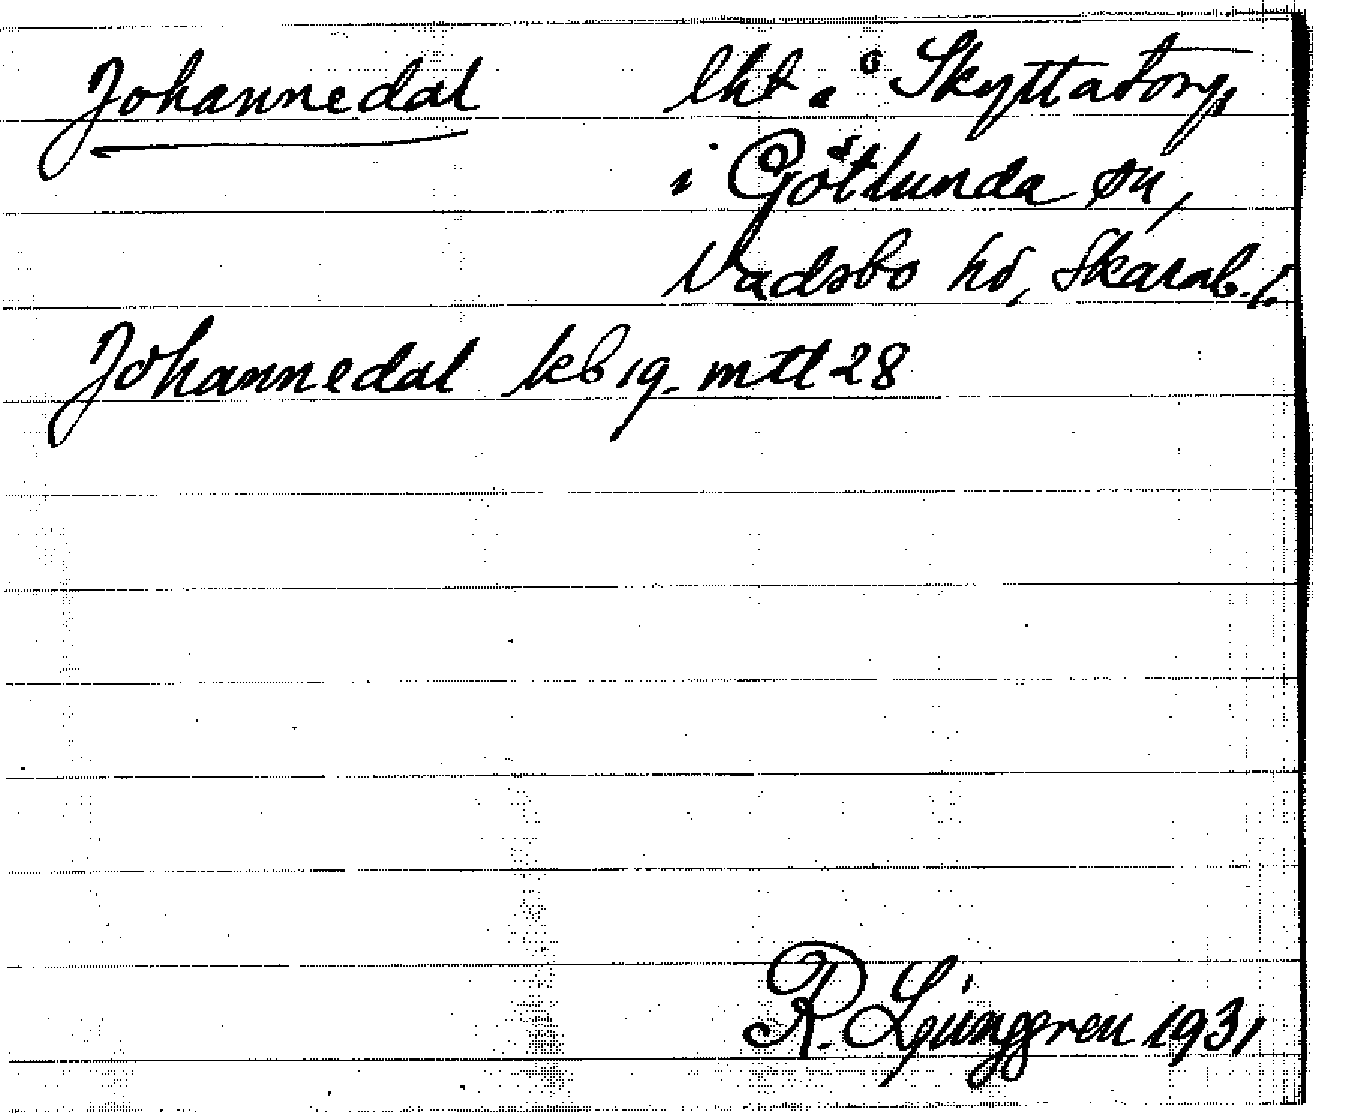 Johannedal lht. å Skyttatorp
i Götlunda sn,
Vadsbo hd, Skarab. l.
Johannedal kb 19. mtl 28
R. Ljunggren 1931